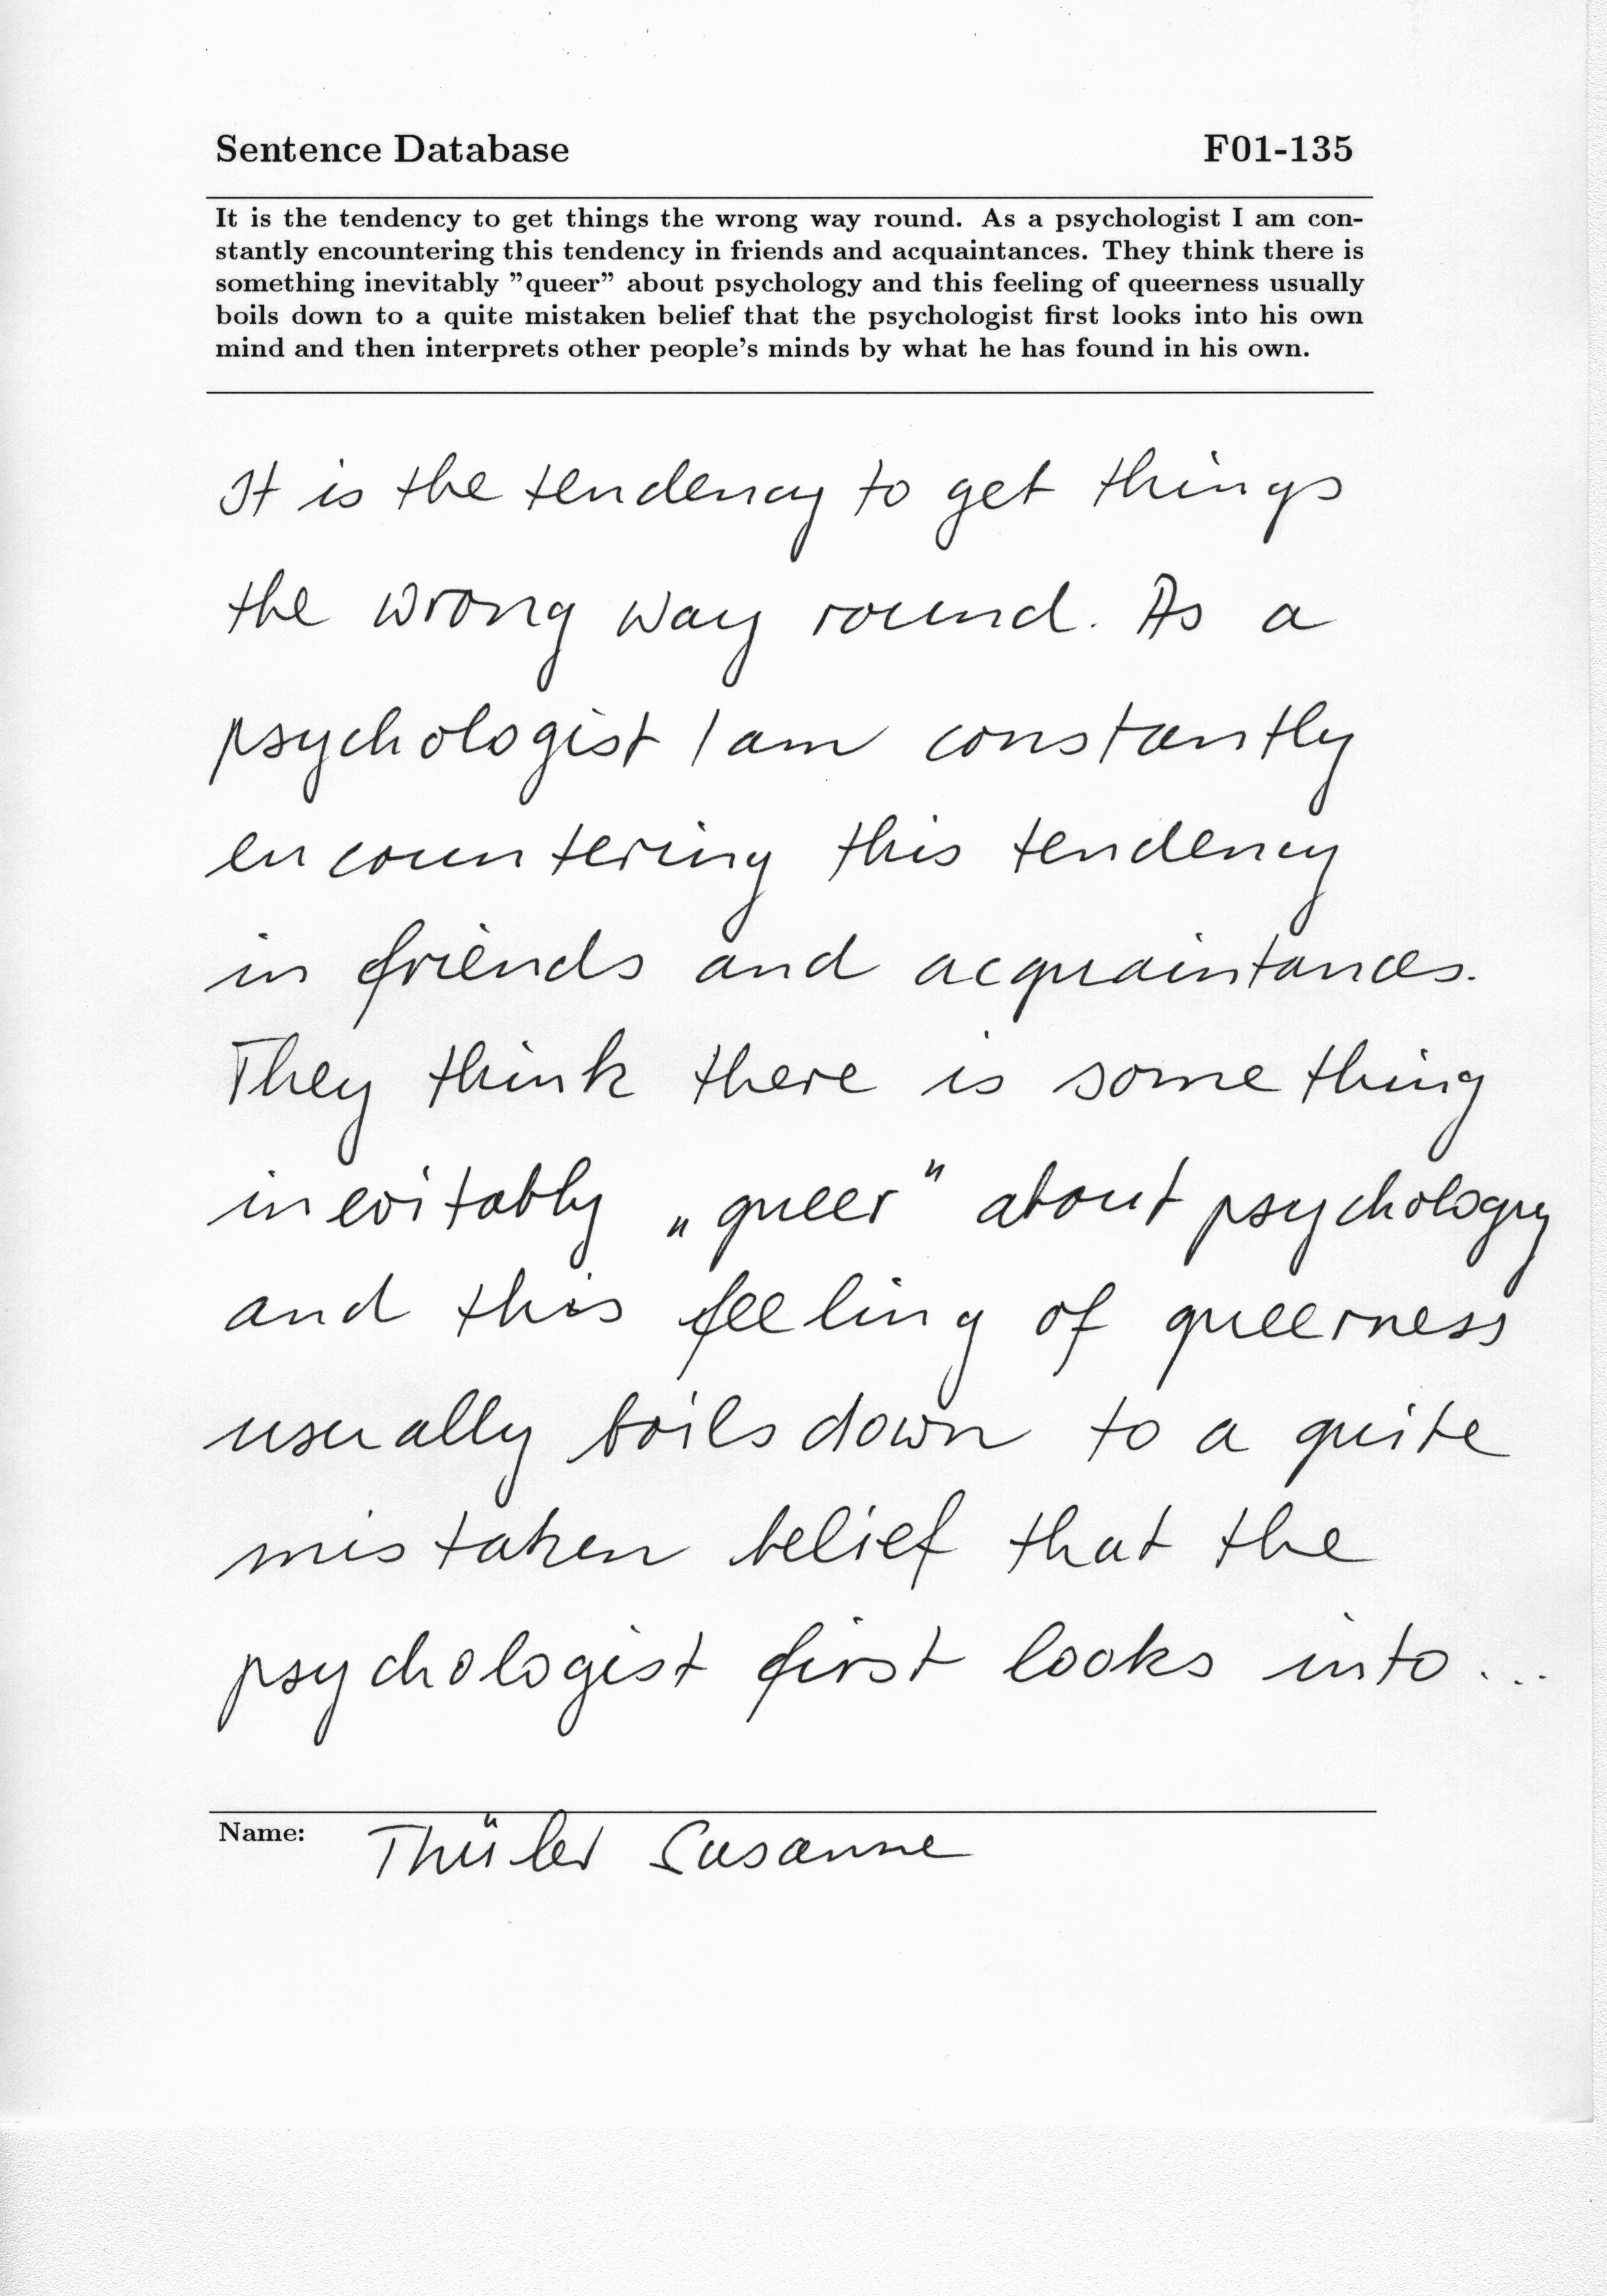 Sentence Database F01-135
It is the tendency to get things the wrong way round. As a psychologist I am con-
stantly encountering this tendency in friends and acquaintances. They think there is
something inevitably ”queer” about psychology and this feeling of queerness usually
boils down to a quite mistaken belief that the psychologist first looks into his own
mind and then interprets other people's minds by what he has found in his own.
It is the tendency to get things
the wrong way round. As a
psychologist I am constantly
encountering this tendency
in friends and acquaintances.
They think there is something
inevitably „queer" about psychology
and this feeling of queerness
usually boils down to a quite
mistaken belief that the
psychologist first looks into...
Name: Thüler Susanne